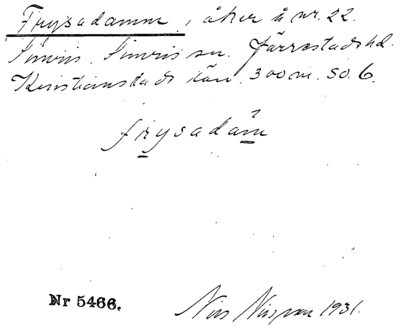 Frysadamm, i åker å nr. 22.
Simris, Simris sn. Järrestads hd.
Kristianstads län. 300 m. SO. 6.
frysadàm
Nr 5466.
Nils Nilsson 1931.